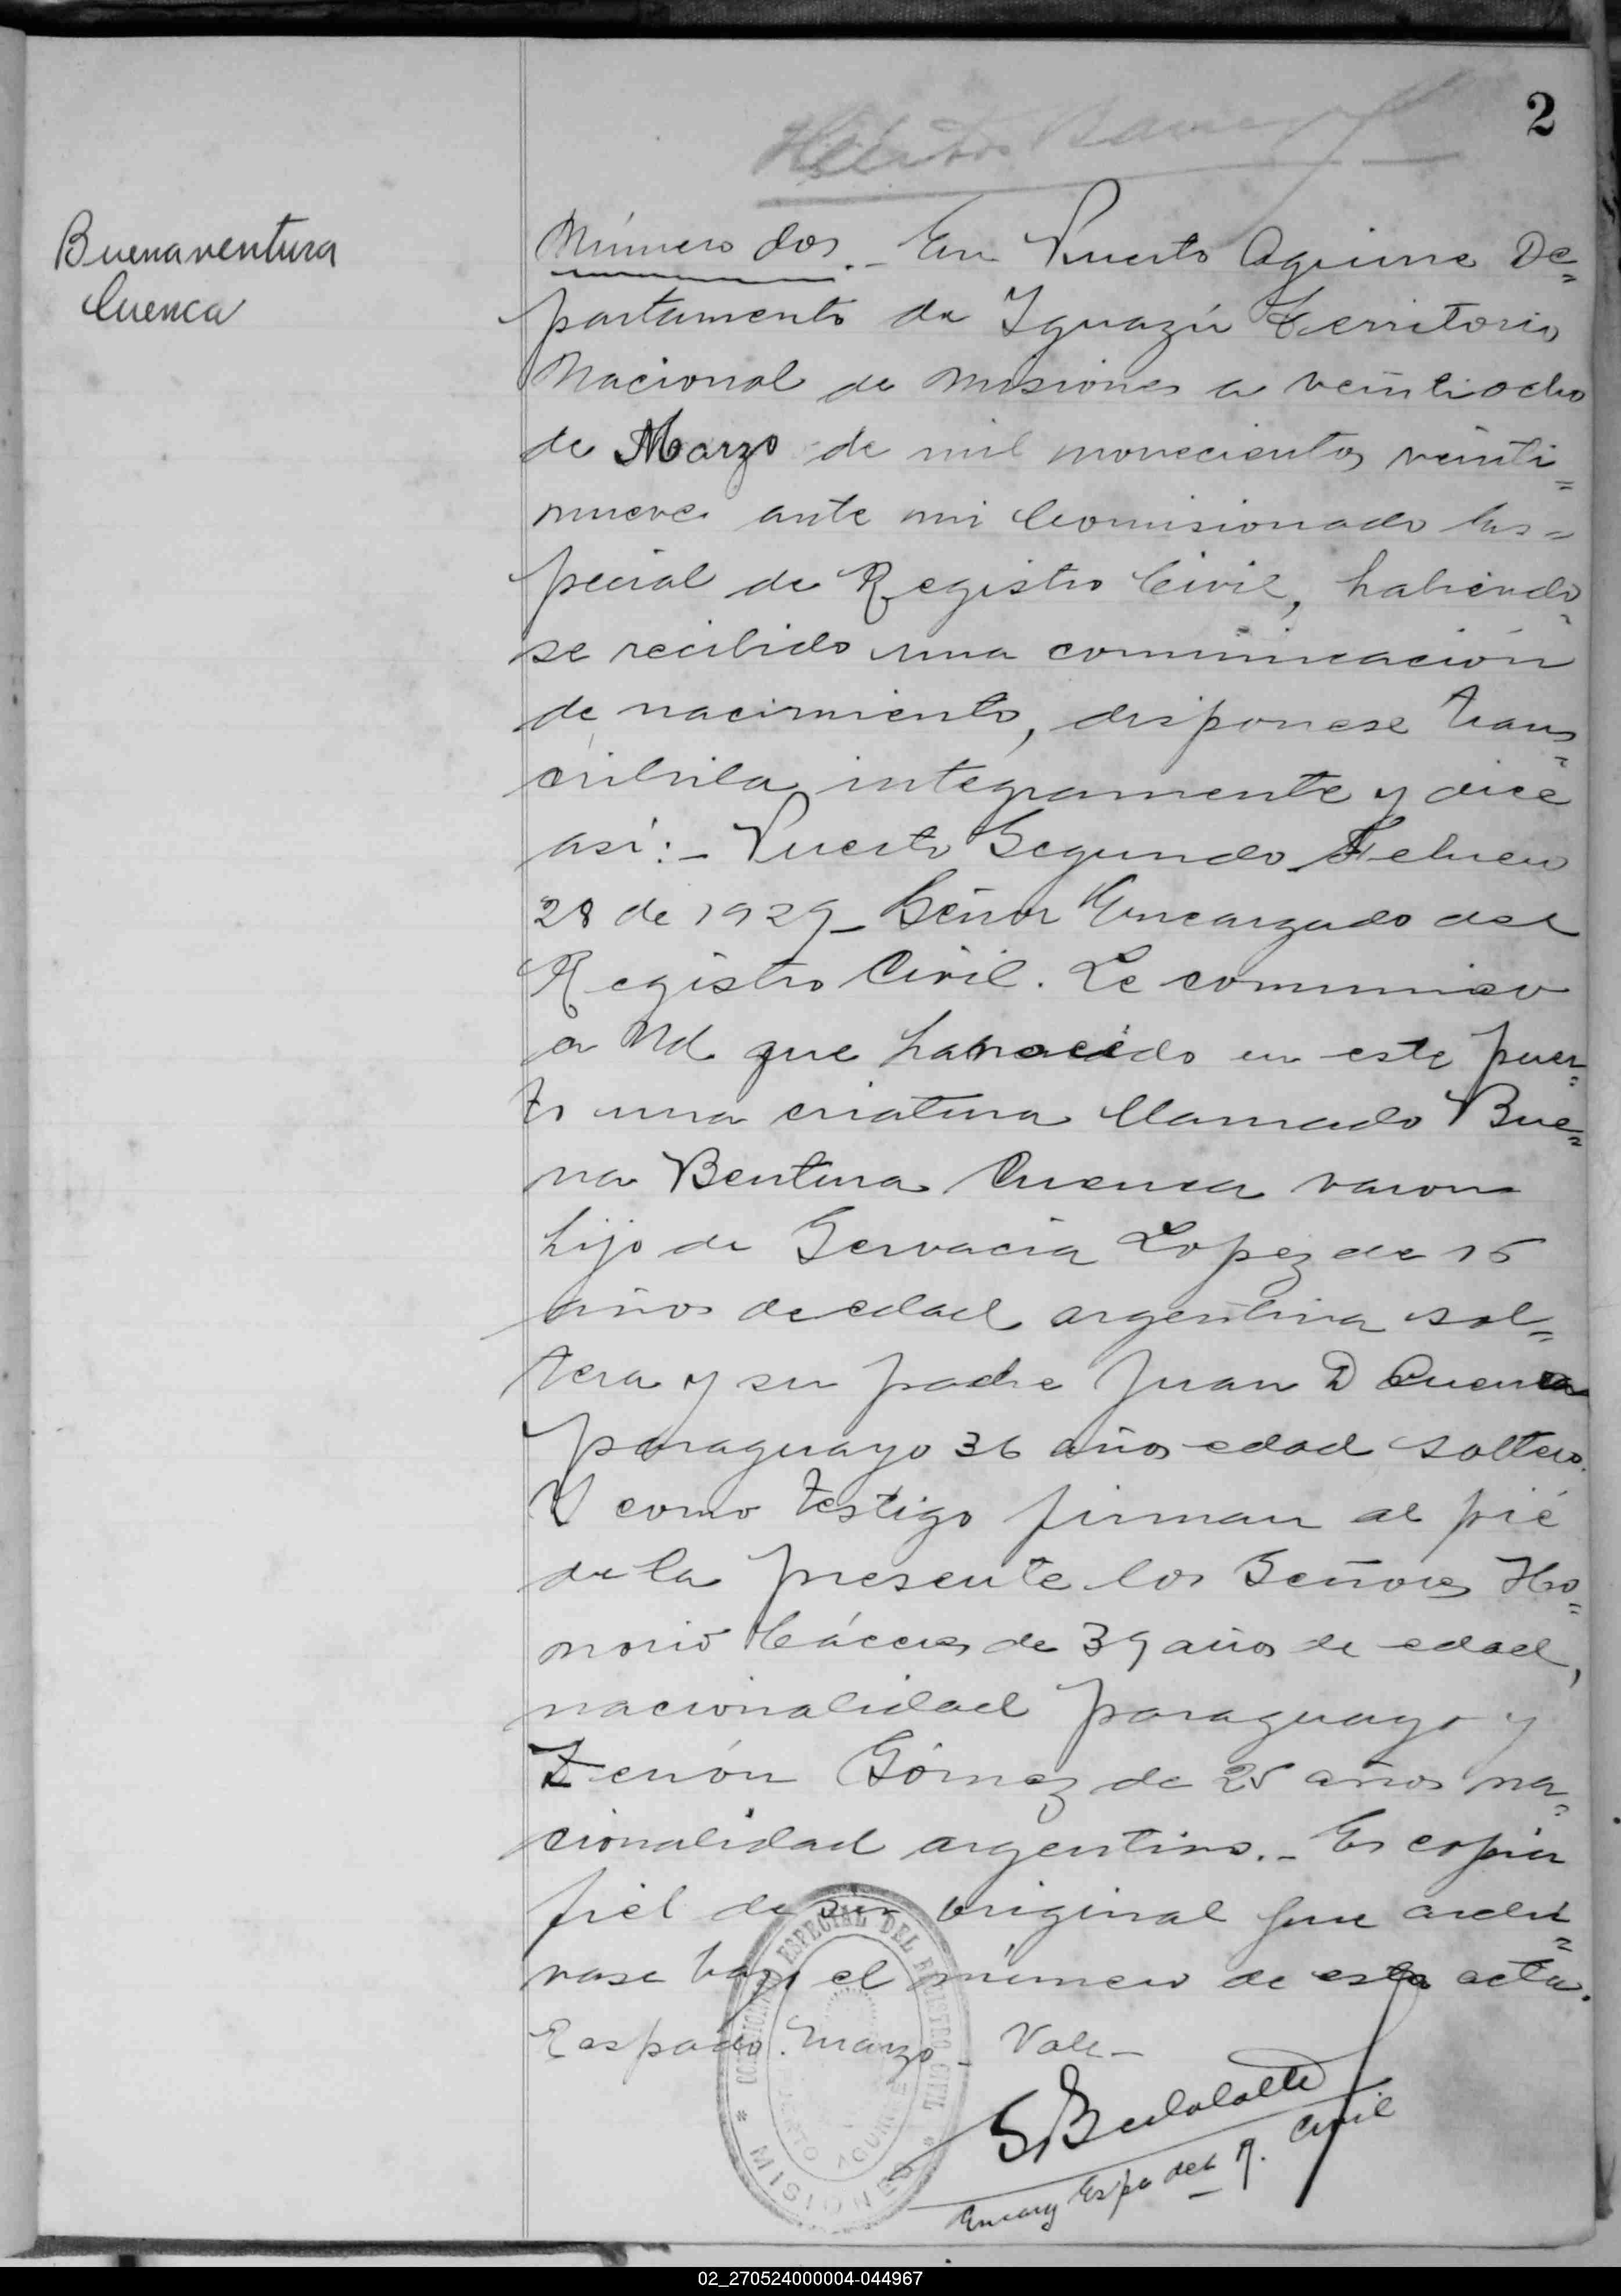 2
Buenaventura
Cuenca
Número dos. - En Puerto Aguirre De=
partamento de Iguazú Territorio
Nacional de Misiones a veintiocho
de Marzo de mil novecientos veinti=
nueve ante mi Comisionado Es=
pecial de Registro Civil, habiendo=
se recibido una comunicación
de nacimiento, disponese trans=
cribirla integramente y dice
así: - Puerto Segundo Febrero
28 de 1929 - Señor Encargado del
Registro Civil. Le comunico
a Ud que ha nacido en este puer=
to una criatura llamado Bue=
na Bentura Cuenca varon
hijo de Gervacia Lopez de 15
años de edad argentina sol=
tera y su padre Juan D Cuenca
paraguayo 36 años edad soltero.
Y como testigo firman al pié
de la presente los Señores Ho=
norio Cáceres de 39 años de edad,
nacionalidad paraguayo y
Zenón Gómez de 25 años na=
cionalidad argentino. - Es copia
fiel de su original que archi=
vase bajo el número de esta acta.
Raspado: Marzo - Vale -
COMISIONADO ESPECIAL DEL REGISTRO CIVIL
PUERTO AGUIRRE
* MISIONES *
Encarg Espe del R. Civil
02_270524000004-044967